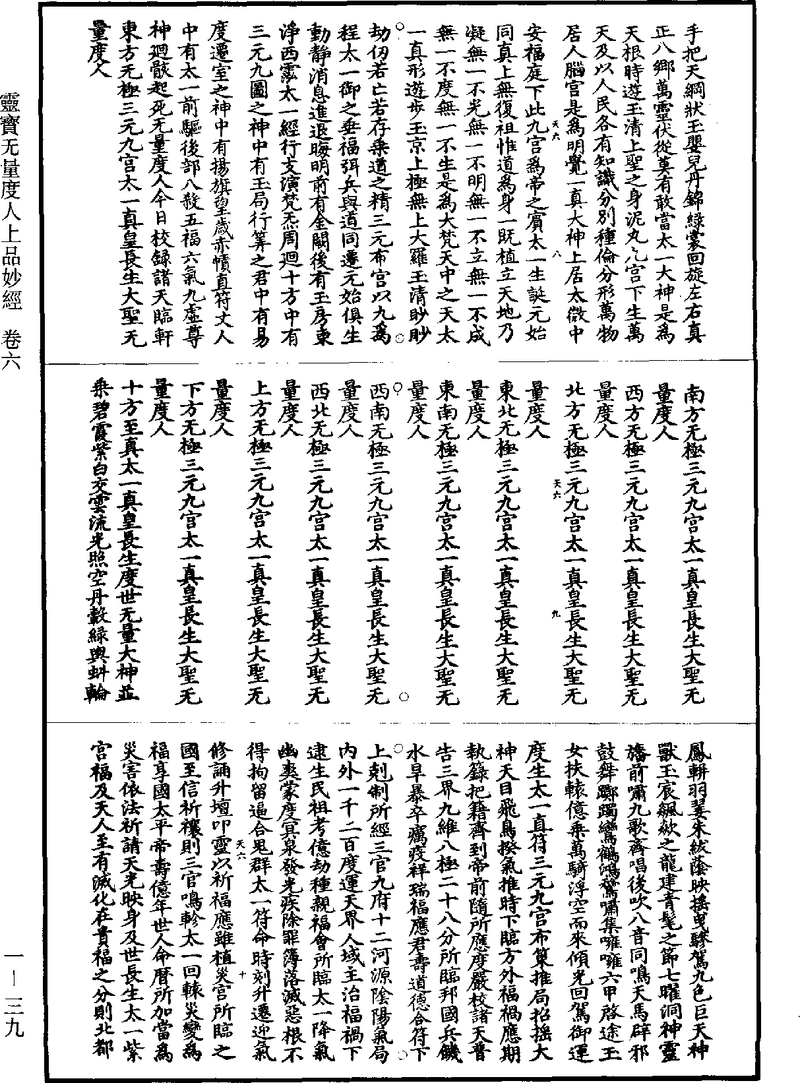 手把天綱狀玉嬰兒丹錦綠裳回旋左右真
正八鄉萬靈伏從莫有敢當太一大神是爲
天根時遊玉清上聖之身泥丸九宮下生萬
天及以人民各有知識分別種倫分形萬物
居人腦宮是爲明覺一真大神上居太微中
天六
八
安福庭下此九宮爲帝之賓太一生誕元始
同真上無復祖惟道爲身一既植立天地乃
凝無一不光無一不明無一不立無一不成
無一不度無一不生是爲大梵天中之天太
一真形遊步玉京上極無上大羅玉清眇眇
劫仞若亡若存乘道之精三元布宮以九爲
程太一御之垂福弭兵與道同遷元始俱生
動靜消息進退晦明前有金闕後有玉房東
淨西靈太一經行支演梵炁周迴十方中有
三元九圖之神中有玉局行筭之君中有易
度遷室之神中有揚旗皇歲赤幘真符丈人
中有太一前驅後部八殺五福六氣九虛尊
神廻骸起死无量度人今日校錄諸天臨軒
東方无極三元九宮太一真皇長生大聖无
量度人
南方无極三元九宮太一真皇長生大聖无
量度人
西方无極三元九宮太一真皇長生大聖无
量度人
北方无極三元九宮太一真皇長生大聖无
天六
九
量度人
東北无極三元九宮太一真皇長生大聖无
量度人
東南无極三元九宮太一真皇長生大聖无
量度人
西南无極三元九宮太一真皇長生大聖无
量度人
西北无極三元九宮太一真皇長生大聖无
量度人
上方无極三元九宮太一真皇長生大聖无
量度人
下方无極三元九宮太一真皇長生大聖无
量度人
十方至真太一真皇長生度世无量大神並
乘碧霞紫白交雲流光照空丹轂綠輿斜輪
鳳軿羽蓋朱紱蔭映搖曳驂駕九色巨天神
獸玉宸飆歘之龍建青髦之節七曜洞神靈
旛前嘯九歌齊唱後吹八音同鳴天馬辟邪
鼓舞躑躅鸞鶴鴻鷺嘯集嗺嗺六甲啓途玉
女扶轅億乘萬騎浮空而來傾光回駕御運
度生太一真符三元九宮布策推局招搖大
神天目飛鳥揆氣推時下臨方外福禍應期
執籙把籍齊到帝前隨所應度嚴校諸天普
告三界九維八極二十八分所臨邦國兵饑
水旱暴卒癘疫祥瑞福應君壽道德合符下
上剋制所經三官九府十二河源陰陽氣局
內外一千二百度運天界人域主治福禍下
逮生民祖考億劫種親福會所臨太一降氣
幽爽蒙度冥泉發光疾除罪簿落滅惡根不
得拘留逼合鬼群太一符命時刻升遷迎氣
天六
十
修誦升壇叩靈以祈福應雖植災宮所臨之
國至信祈禳則三官鳴軫太一回轅災變爲
福享國太平帝壽億年世人命曆所加當爲
災害依法祈請天光映身及世長生太一紫
宮福及天人至有滅化在貴福之分則北都
靈寶无量度人上品妙經 卷六
一-三九